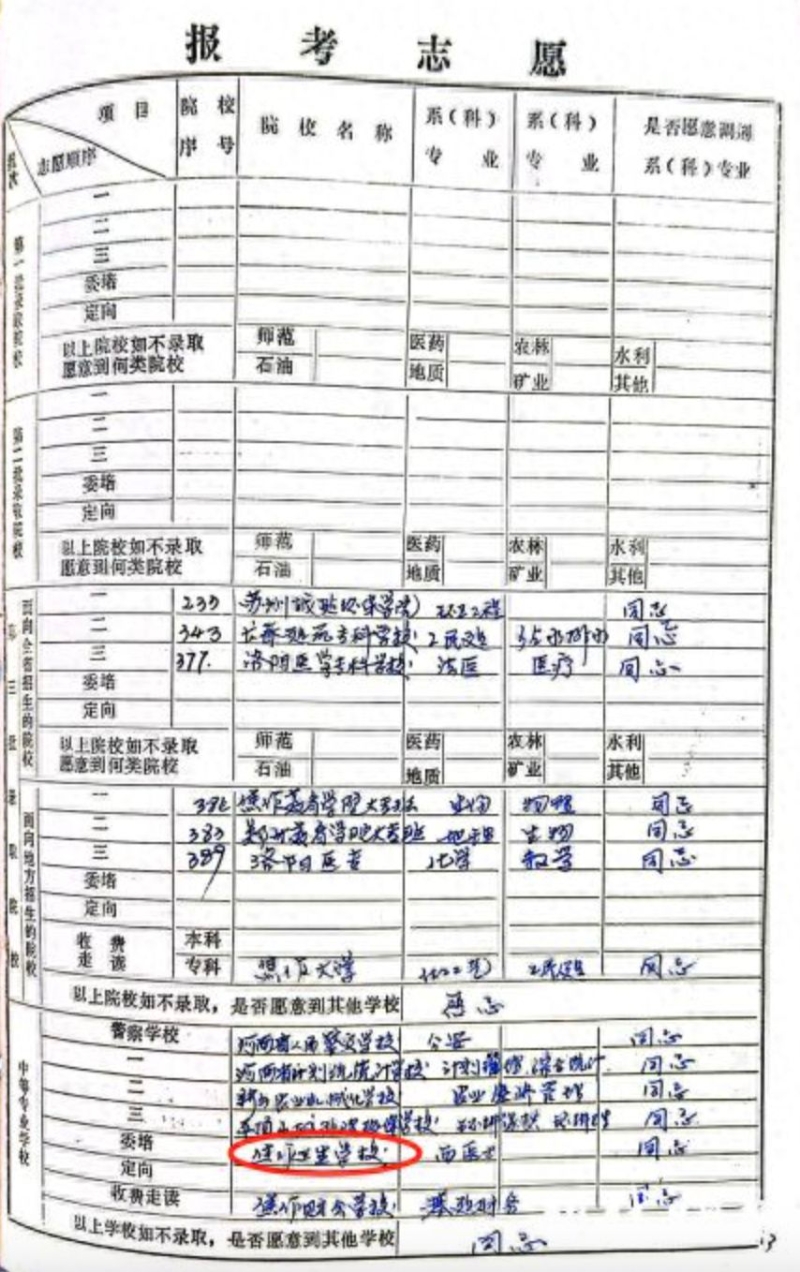 报考志愿
项目 院校序号 院校名称 系(科)专业 系(科)专业 是否愿意调剂系(科)专业
批次 志愿顺序
第一批录取院校
一
二
三
委培
定向
以上院校如不录取愿意到何类院校 师范 医药 农林 水利
石油 地质 矿业 其他
第二批录取院校
一
二
三
委培
定向
以上院校如不录取愿意到何类院校 师范 医药 农林 水利
石油 地质 矿业 其他
第三批录取院校
面向全省招生的院校
一 235 苏州城建环保学院 环境工程 同志
二 343 长春建筑专科学校 工民建 同志
三 377. 洛阳医学专科学校 法医 医疗 同志
委培
定向
以上院校如不录取愿意到何类院校 师范 医药 农林 水利
石油 地质 矿业 其他
面向地方招生的院校
一 焦作教育学院大专班 生物 物理 同志
二 383 郑州教育学院大专班 地理 生物 同志
三 389 洛阳医专 化学 数学 同志
委培
定向
收费走读 本科
专科 焦作大学 工民建 同志
以上院校如不录取,是否愿意到其他学校
中等专业学校
警察学校 河南省人民警察学校 公安 同志
一 河南省计划统计学校 计划管理 综合统计 同志
二 新乡农业机械化学校 农业经济管理 同志
三 同志
委培 焦作卫生学校 西医士 同志
定向
收费走读 焦作财会学校 同志
以上学校如不录取,是否愿意到其他学校 同志
13